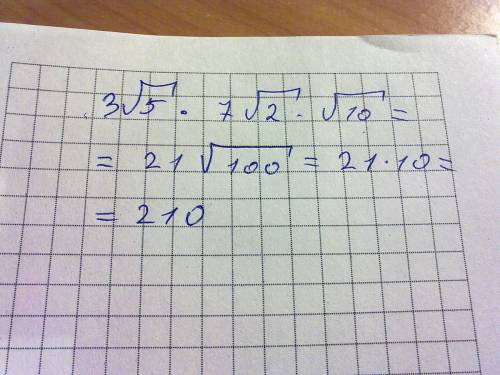 3√5 · 7√2 · √10 =
= 21√100 = 21·10 =
= 210